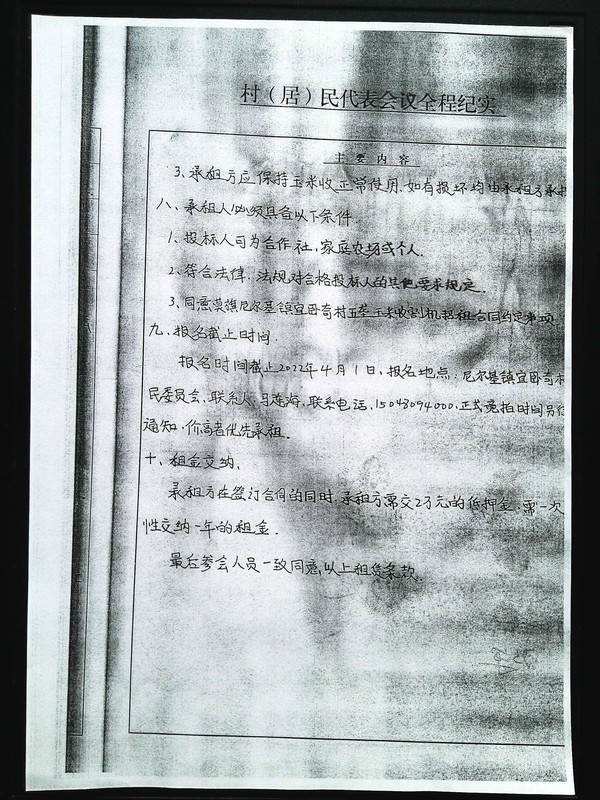 村（居）民代表会议全程纪实
主要内容
3、承租方应保持玉米收正常使用.如有损坏均由承租方承担
八、承租人必须具备以下条件.
1、投标人可为合作社,家庭农场或个人.
2.符合法律.法规对合格投标人的其他要求规定.
3、同意莫旗尼尔基镇宜卧奇村五垄玉米收割机招租合同约定事项
九、报名截止时间.
报名时间截止2022年4月1日,报名地点:尼尔基镇宜卧奇村
民委员会,联系人 连海,联系电话,15048094000,正式竞拍时间另行
通知.价高者优先承租.
十、租金交纳、
承租方在签订合同的同时,承租方需交2万元的抵押金.需一次
性交纳一年的租金.
最后参会人员一致同意以上租赁条款.